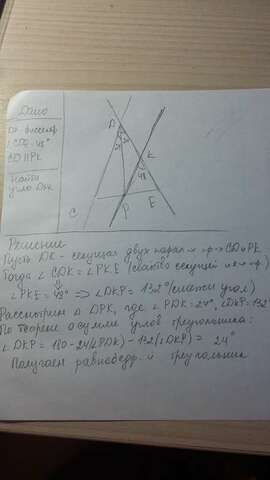 Дано
DP - биссектр
∠CDE - 48°
CD || PK
Найти
углы DPK
D
24
24
K
48
C
P
E
Решение
Пусть DK - секущая двух парал-х пр-х CD и PK
Тогда ∠ CDK = ∠ PKE (свойство секущей и пр-х)
∠ PKE = 48° ⇒ ∠DKP = 132° (смежн угол)
Рассмотрим △ DPK, где ∠ PDK = 24°, ∠DKP = 132
По теореме о сумме углов треугольника:
∠ DKP = 180 - 24(∠PDK) - 132(∠DKP) = 24°
Получаем равнобедр-й треугольник